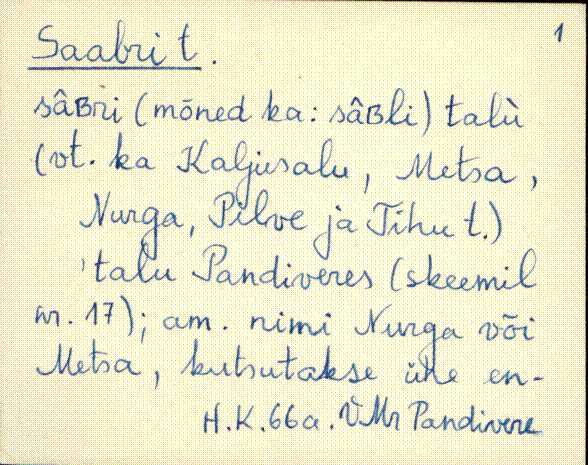 1
Saabri t.
sâʙri (mõned ka: sâʙli) talù
(vt. ka Kaljusalu, Metsa,
Nurga, Pilve ja Tihu t.)
'talu Pandiveres (skeemil
nr. 17); am. nimi Nurga või
Metsa, kutsutakse ühe en-
H.K.66a. VMr Pandivere